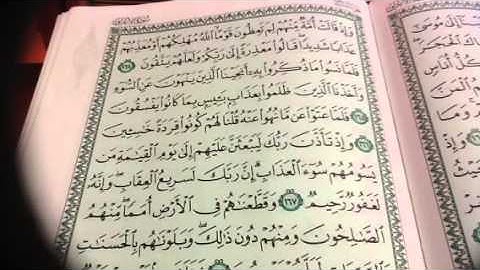 وَإِذْ قَالَتْ أُمَّةٌ مِّنْهُمْ لِمَ تَعِظُونَ قَوْمًا ٱللَّهُ مُهْلِكُهُمْ أَوْ مُعَذِّبُهُمْ
عَذَابًا شَدِيدًا قَالُوا۟ مَعْذِرَةً إِلَىٰ رَبِّكُمْ وَلَعَلَّهُمْ يَتَّقُونَ ١٦٤
فَلَمَّا نَسُوا۟ مَا ذُكِّرُوا۟ بِهِۦٓ أَنجَيْنَا ٱلَّذِينَ يَنْهَوْنَ عَنِ ٱلسُّوٓءِ
وَأَخَذْنَا ٱلَّذِينَ ظَلَمُوا۟ بِعَذَابٍۭ بَـِٔيسٍۭ بِمَا كَانُوا۟ يَفْسُقُونَ
١٦٥ فَلَمَّا عَتَوْا۟ عَن مَّا نُهُوا۟ عَنْهُ قُلْنَا لَهُمْ كُونُوا۟ قِرَدَةً خَـٰسِـِٔينَ
١٦٦ وَإِذْ تَأَذَّنَ رَبُّكَ لَيَبْعَثَنَّ عَلَيْهِمْ إِلَىٰ يَوْمِ ٱلْقِيَـٰمَةِ مَن
يَسُومُهُمْ سُوٓءَ ٱلْعَذَابِ ۗ إِنَّ رَبَّكَ لَسَرِيعُ ٱلْعِقَابِ ۖ وَإِنَّهُۥ
لَغَفُورٌ رَّحِيمٌ ١٦٧ وَقَطَّعْنَـٰهُمْ فِى ٱلْأَرْضِ أُمَمًا ۖ مِّنْهُمُ
ٱلصَّـٰلِحُونَ وَمِنْهُمْ دُونَ ذَٰلِكَ ۖ وَبَلَوْنَـٰهُم بِٱلْحَسَنَـٰتِ
إِلَىٰ مُوسَىٰٓ
ٱلْحَجَرَ
كُلُّ أُنَاسٍ
ٱلْمَنَّ
وَمَا
وَإِذْ